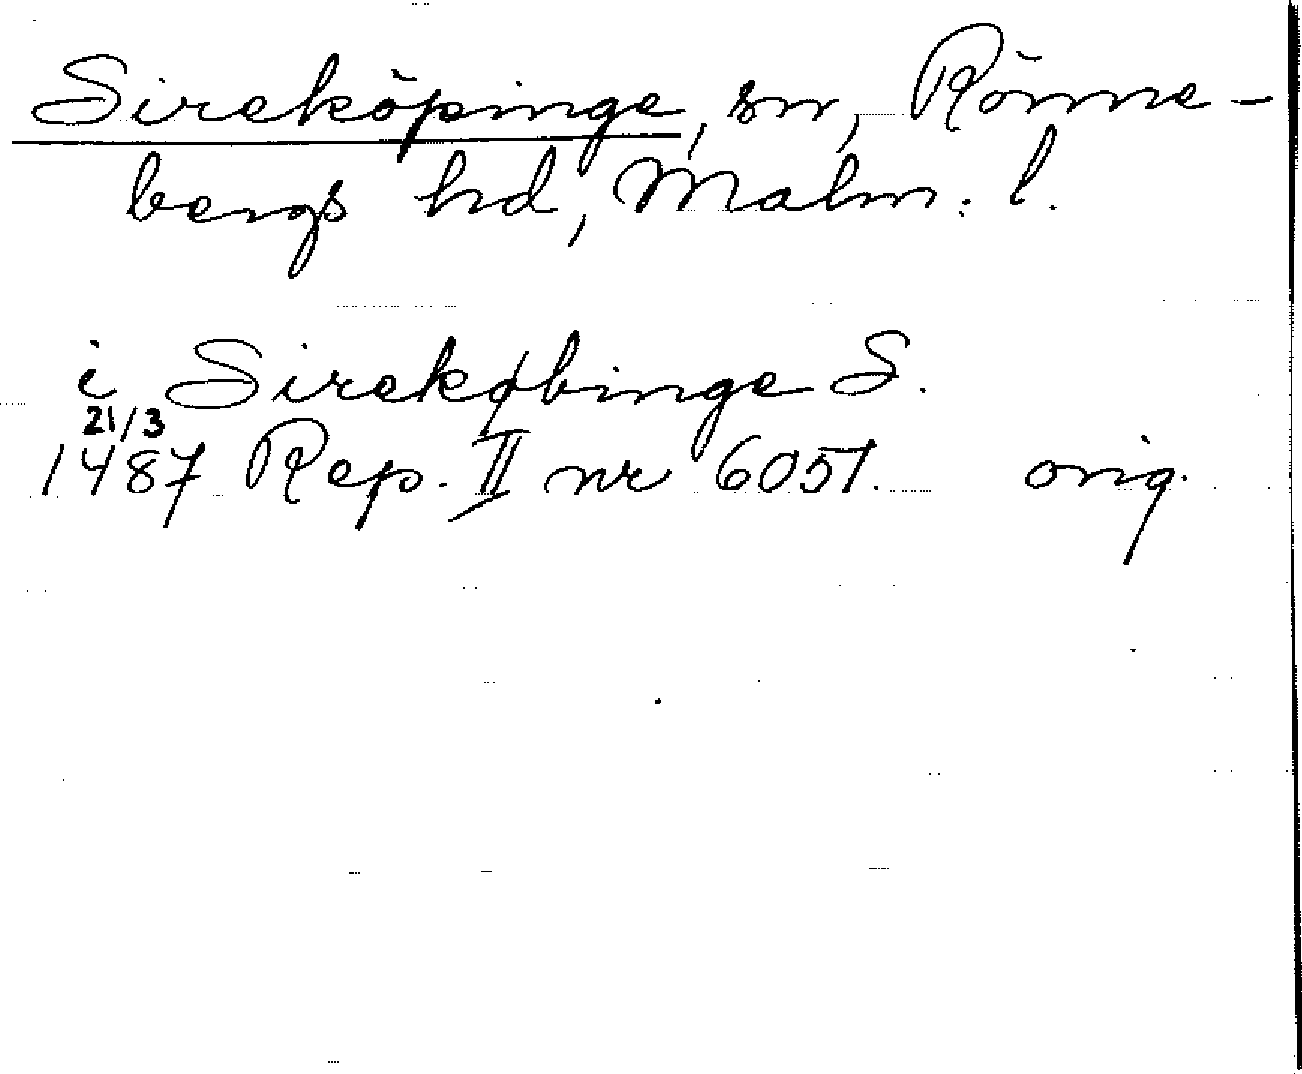 Sireköpinge, sn, Rönne-
bergs hd, Malm. l.
i Sirekøbinge S.
21/3
1487 Rep. II nr 6051. orig.